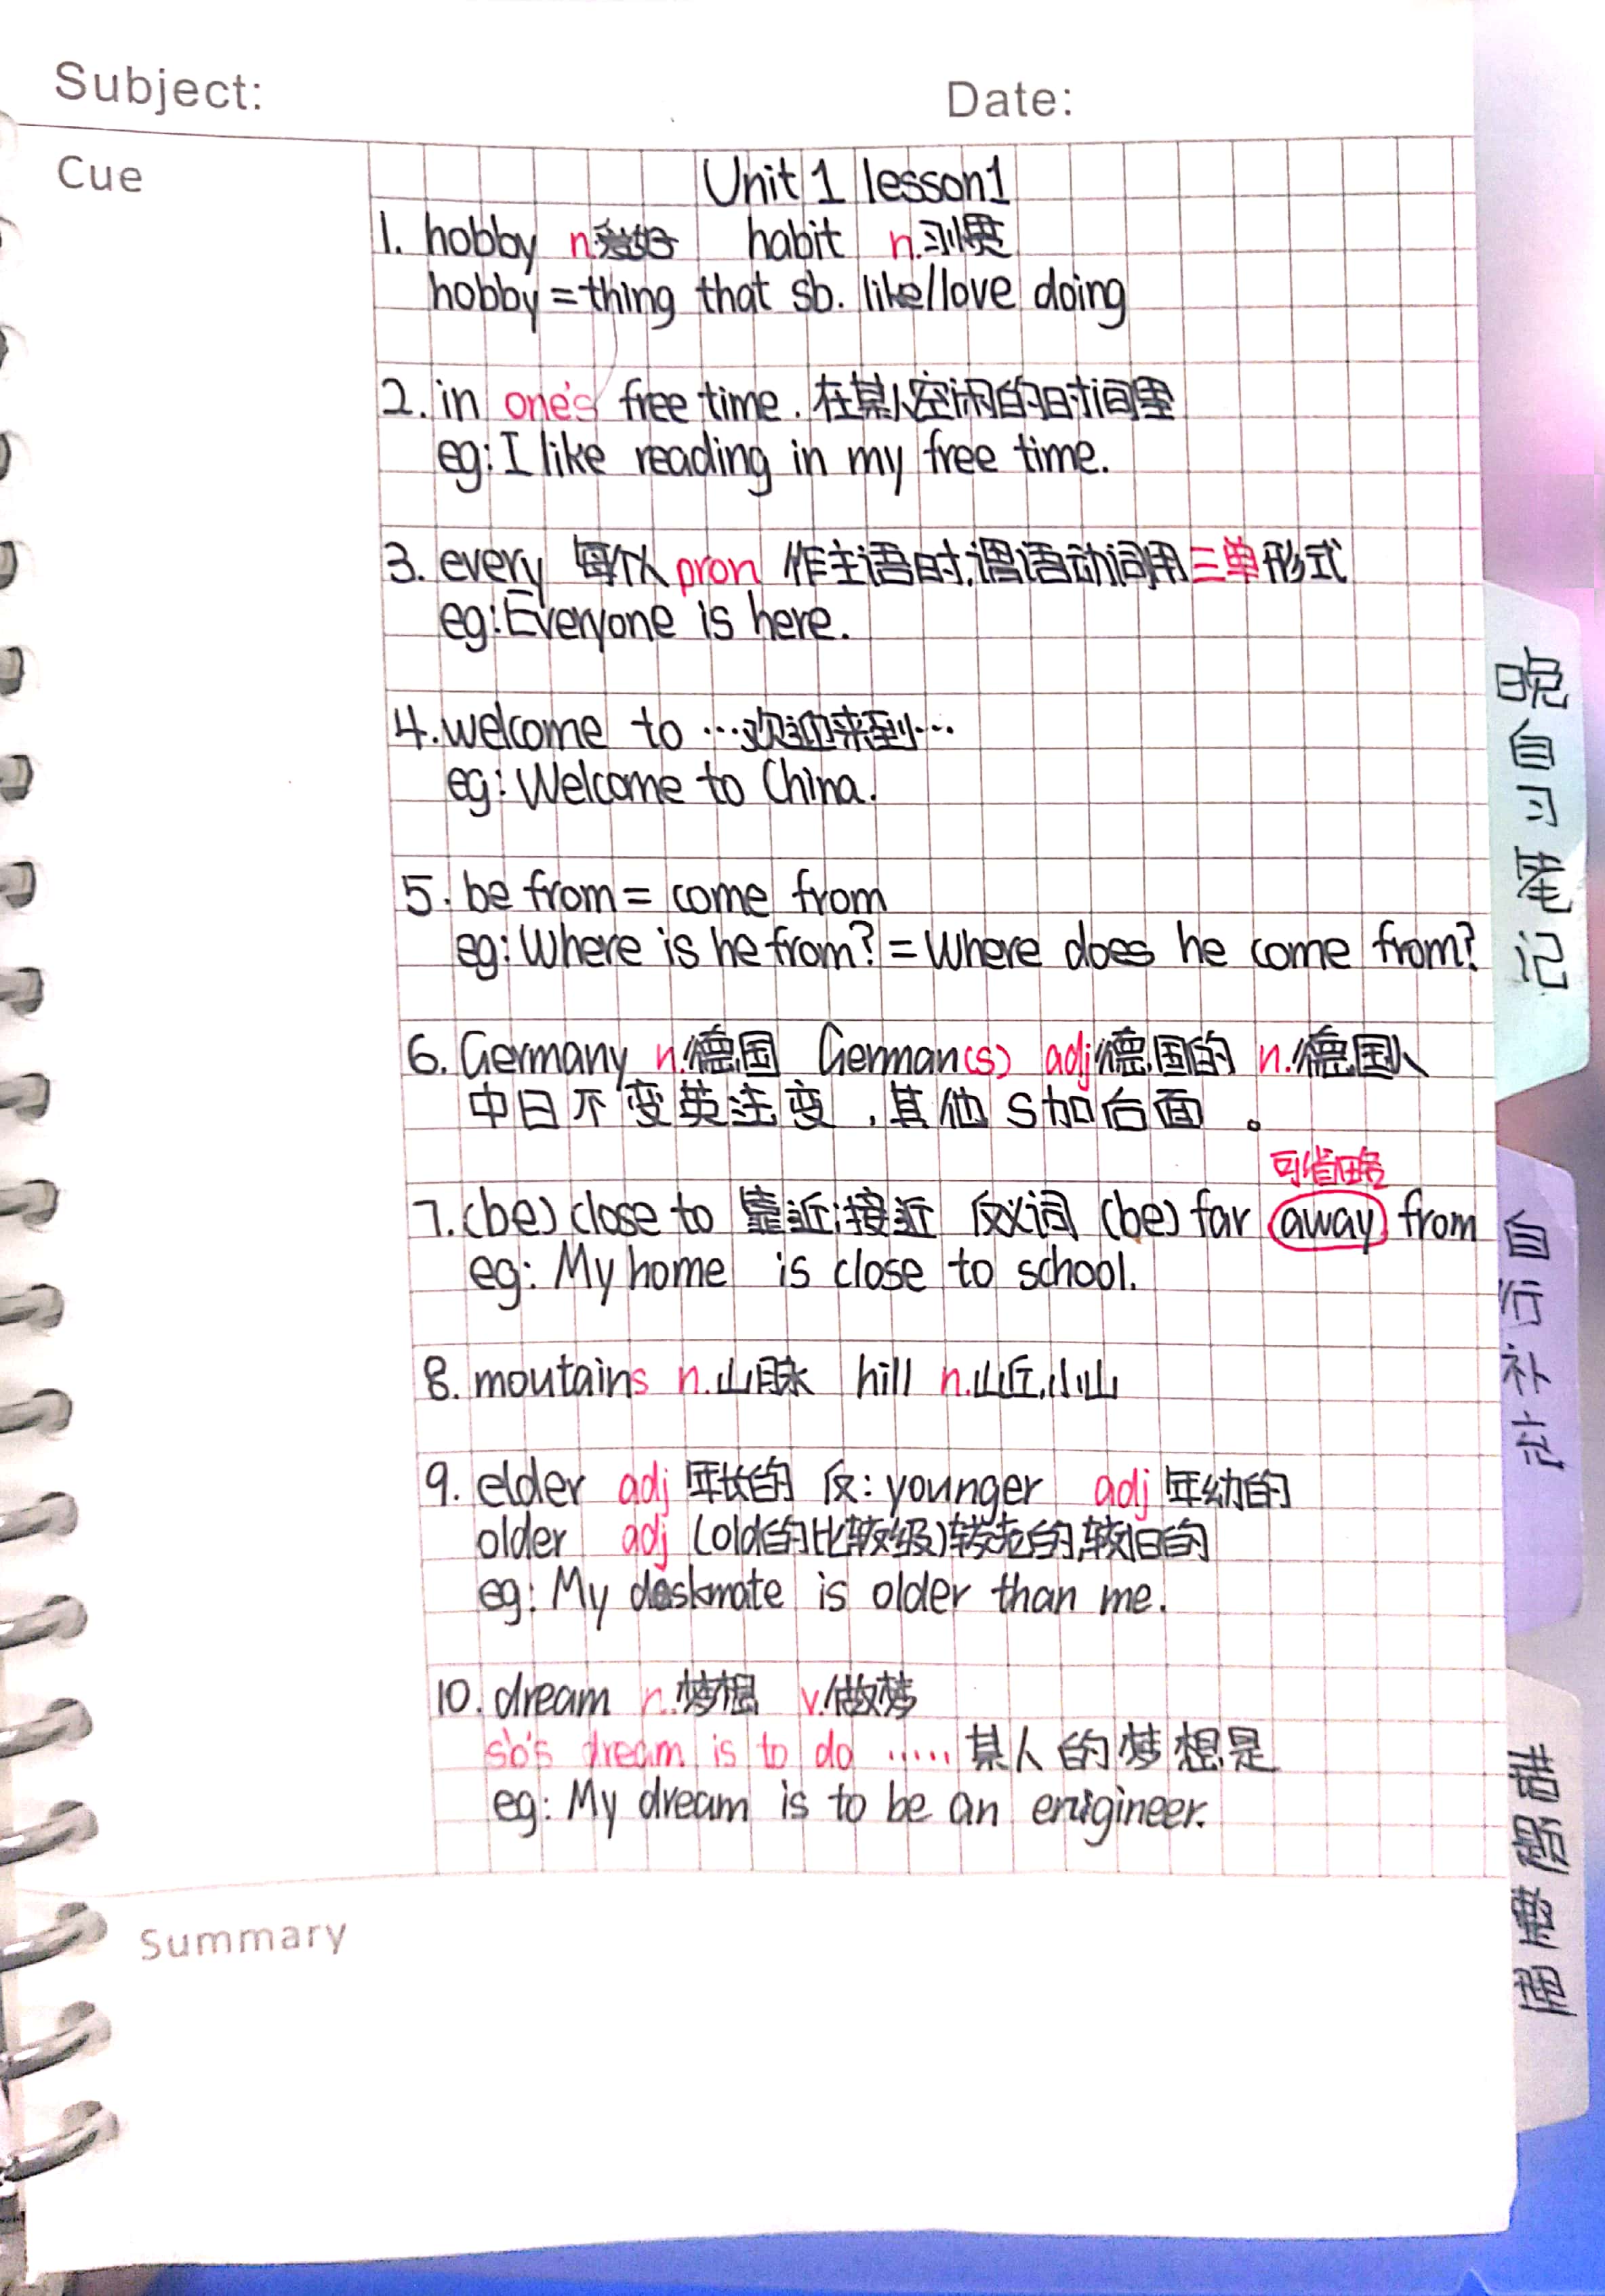 Subject:
Date:
Cue
Unit 1 lesson1
1. hobby n.爱好 habit n.习惯
hobby=thing that sb. like/love doing
2. in one's free time. 在某人空闲的时间里
eg: I like reading in my free time.
3. every 每个人 pron 作主语时,谓语动词用三单形式
eg: Everyone is here.
4. welcome to …欢迎来到…
eg: Welcome to China.
5. be from = come from
eg: Where is he from? = Where does he come from?
6. Germany n.德国 German(s) adj德国的 n.德国人
中日不变英法变,其他S加后面。
可省略
7. (be) close to 靠近;接近 反义词 (be) far away from
eg: My home is close to school.
8. moutains n.山脉 hill n.山丘,小山
9. elder adj 年长的 反: younger adj 年幼的
older adj (old的比较级)较老的,较旧的
eg: My deskmate is older than me.
10. dream n.梦想 v.做梦
sb's dream is to do ..... 某人的梦想是
eg: My dream is to be an engineer.
Summary
晚自习笔记
自行补充
错题整理